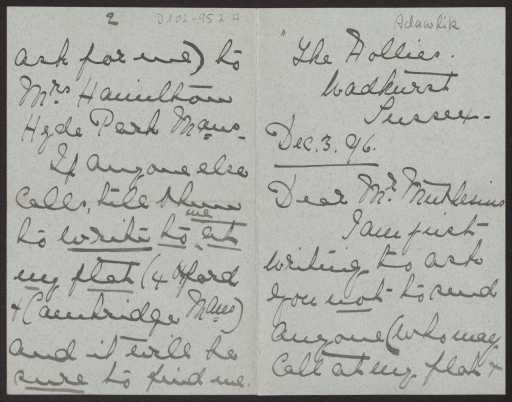 Adawlik
"The Hollies.
Wadhurst
Sussex-
Dec. 3. 96.
Dear Mr. Muthesius
I am just
writing to ask
you not to send
anyone (who may
call at my flat &
2
D102-952 A
ask for me) to
Mrs Hamilton
Hyde Park Mans.
If anyone else
calls, tell them
to write to me at
my flat (4 Oxford
& Cambridge Mans)
and it will be
sure to find me.